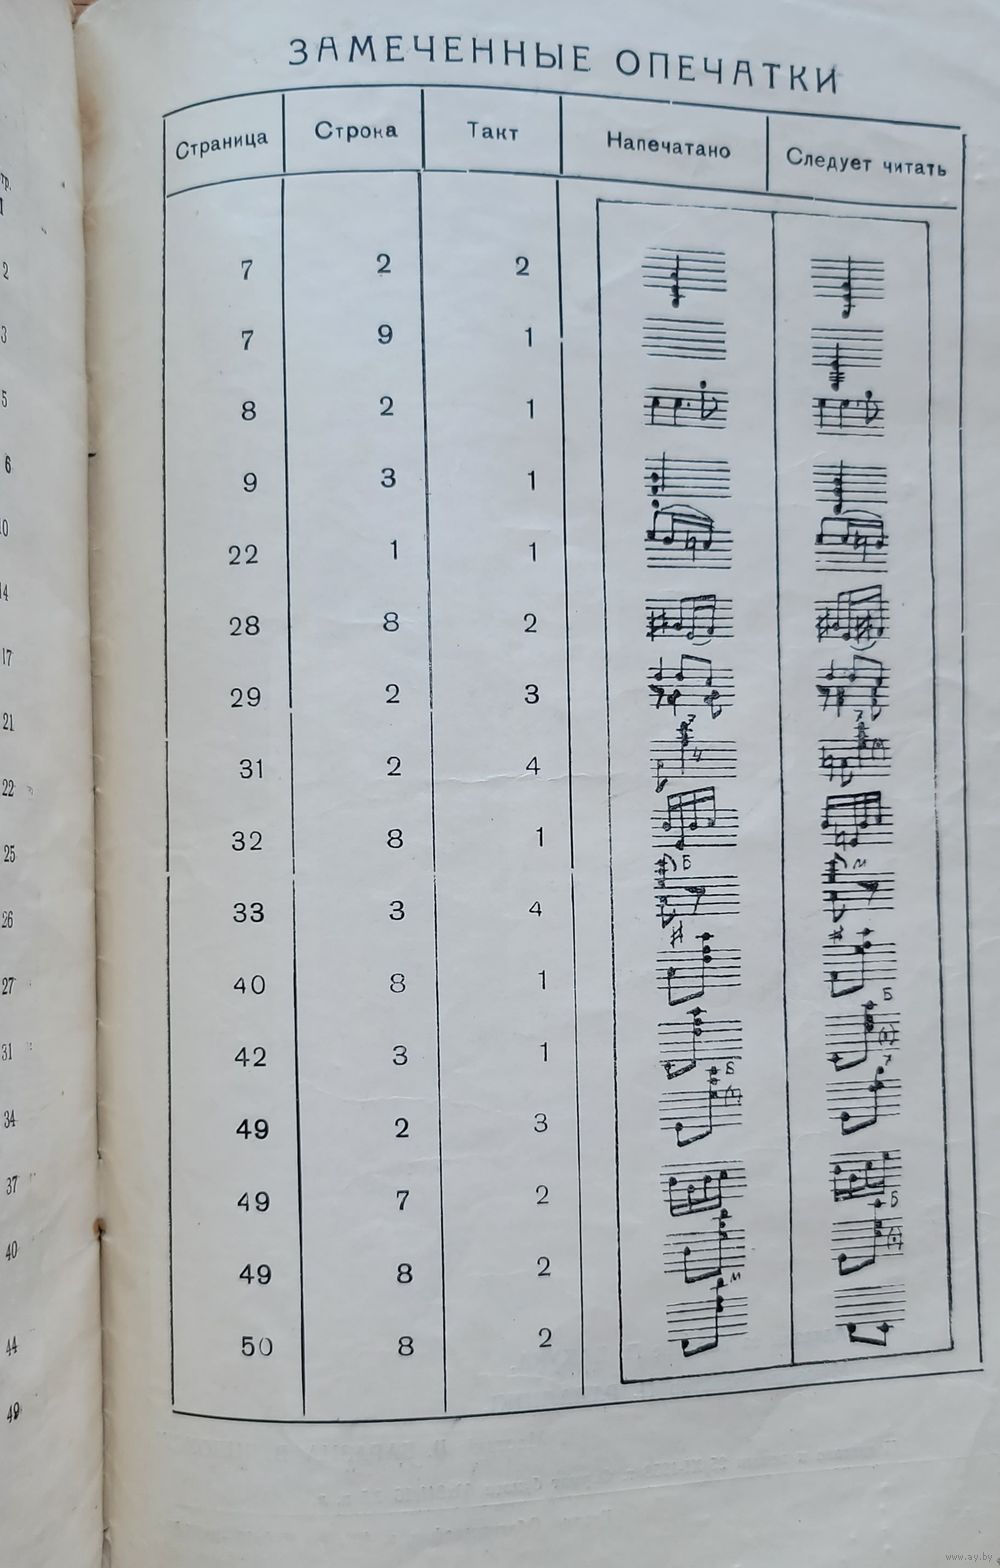 ЗАМЕЧЕННЫЕ ОПЕЧАТКИ
Страница Строка Такт Напечатано Следует читать
7 2 2
7 9 1
8 2 1
9 3 1
22 1 1
28 8 2
29 2 3
31 2 4
32 8 1
33 3 4
40 8 1
42 3 1
49 2 3
49 7 2
49 8 2
50 8 2
2
3
5
6
10
14
17
21
22
25
26
27
31
34
37
40
44
49
www.ay.by